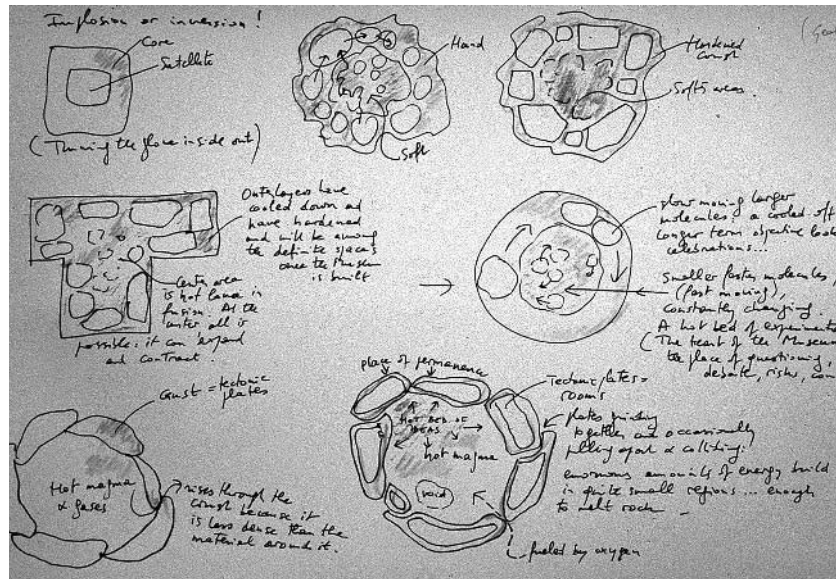 Implosion or inversion!
Core
Satellite
(Turning the glove inside out)
Hard
Soft
Hardened
crust
Soft areas
Outer layers have
cooled down and
have hardened
and will be among
the definite spaces
once the Museum
is built
Center area
is hot lava in
fusion. At the
center all is
possible: it can expand
and contract.
slow moving larger
molecules: a cooled off
longer term objective
celebrations...
Smaller faster molecules,
(fast moving),
constantly changing.
A hot bed of
(The heart of the Museum
the place of questioning,
debate, risks,
Crust = tectonic
plates
Hot magma
& gases
rises through the
crust because it
is less dense than the
material around it.
place of permanence
HOT BED OF
IDEAS
hot magma
void
Tectonic plates =
rooms
plates grinding
together and occasionally
pulling apart & colliding:
enormous amounts of energy build
in quite small regions ... enough
to melt rock
fueled by oxygen